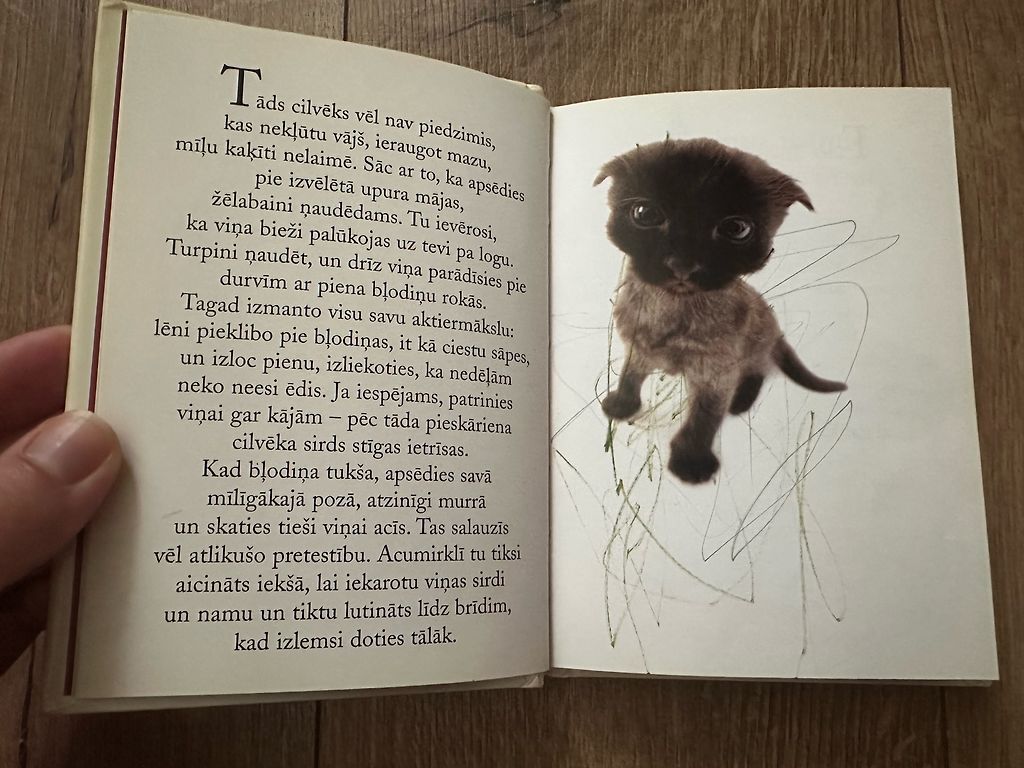 Tāds cilvēks vēl nav piedzimis,
kas nekļūtu vājš, ieraugot mazu,
mīļu kaķīti nelaimē. Sāc ar to, ka apsēdies
pie izvēlētā upura mājas,
žēlabaini ņaudēdams. Tu ievērosi,
ka viņa bieži palūkojas uz tevi pa logu.
Turpini ņaudēt, un drīz viņa parādīsies pie
durvīm ar piena bļodiņu rokās.
Tagad izmanto visu savu aktiermākslu:
lēni pieklibo pie bļodiņas, it kā ciestu sāpes,
un izloc pienu, izliekoties, ka nedēļām
neko neesi ēdis. Ja iespējams, patrinies
viņai gar kājām – pēc tāda pieskāriena
cilvēka sirds stīgas ietrīsas.
Kad bļodiņa tukša, apsēdies savā
mīlīgākajā pozā, atzinīgi murrā
un skaties tieši viņai acīs. Tas salauzīs
vēl atlikušo pretestību. Acumirklī tu tiksi
aicināts iekšā, lai iekarotu viņas sirdi
un namu un tiktu lutināts līdz brīdim,
kad izlemsi doties tālāk.